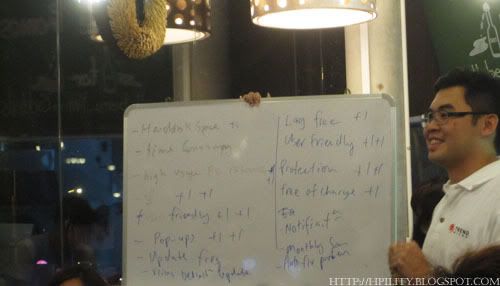 - Harddisk Space +1
- time Consuming
- high usage PC
+1 +1
friendly +1 +1
- Pop-ups +1 +1
- Update freq
- Virus Update
Lag free +1
User Friendly +1 +1
Protection +1 +1
free of charge +1
Notificat
- Monthly
- Auto fix
TREND
HTTP://HPILITY.BLOGSPOT.COM